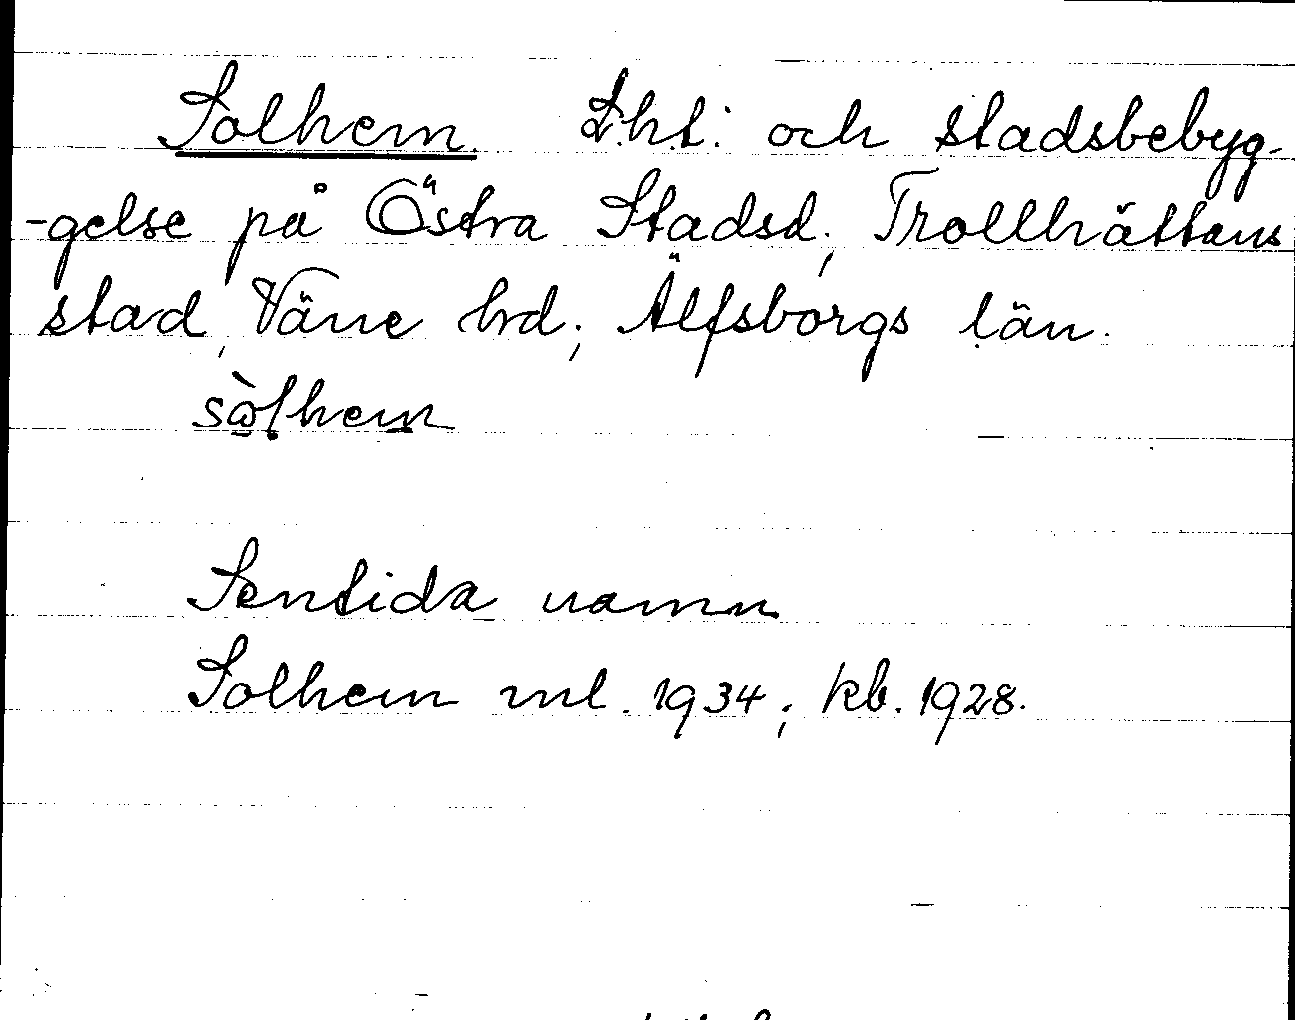 Solhem. Lht. och stadsbebyg-
-gelse på Östra Stadsd., Trollhättans
stad, Väne hd; Älfsborgs län.
sòlhem
Sentida namn
Solhem ml. 1934; kb. 1928.